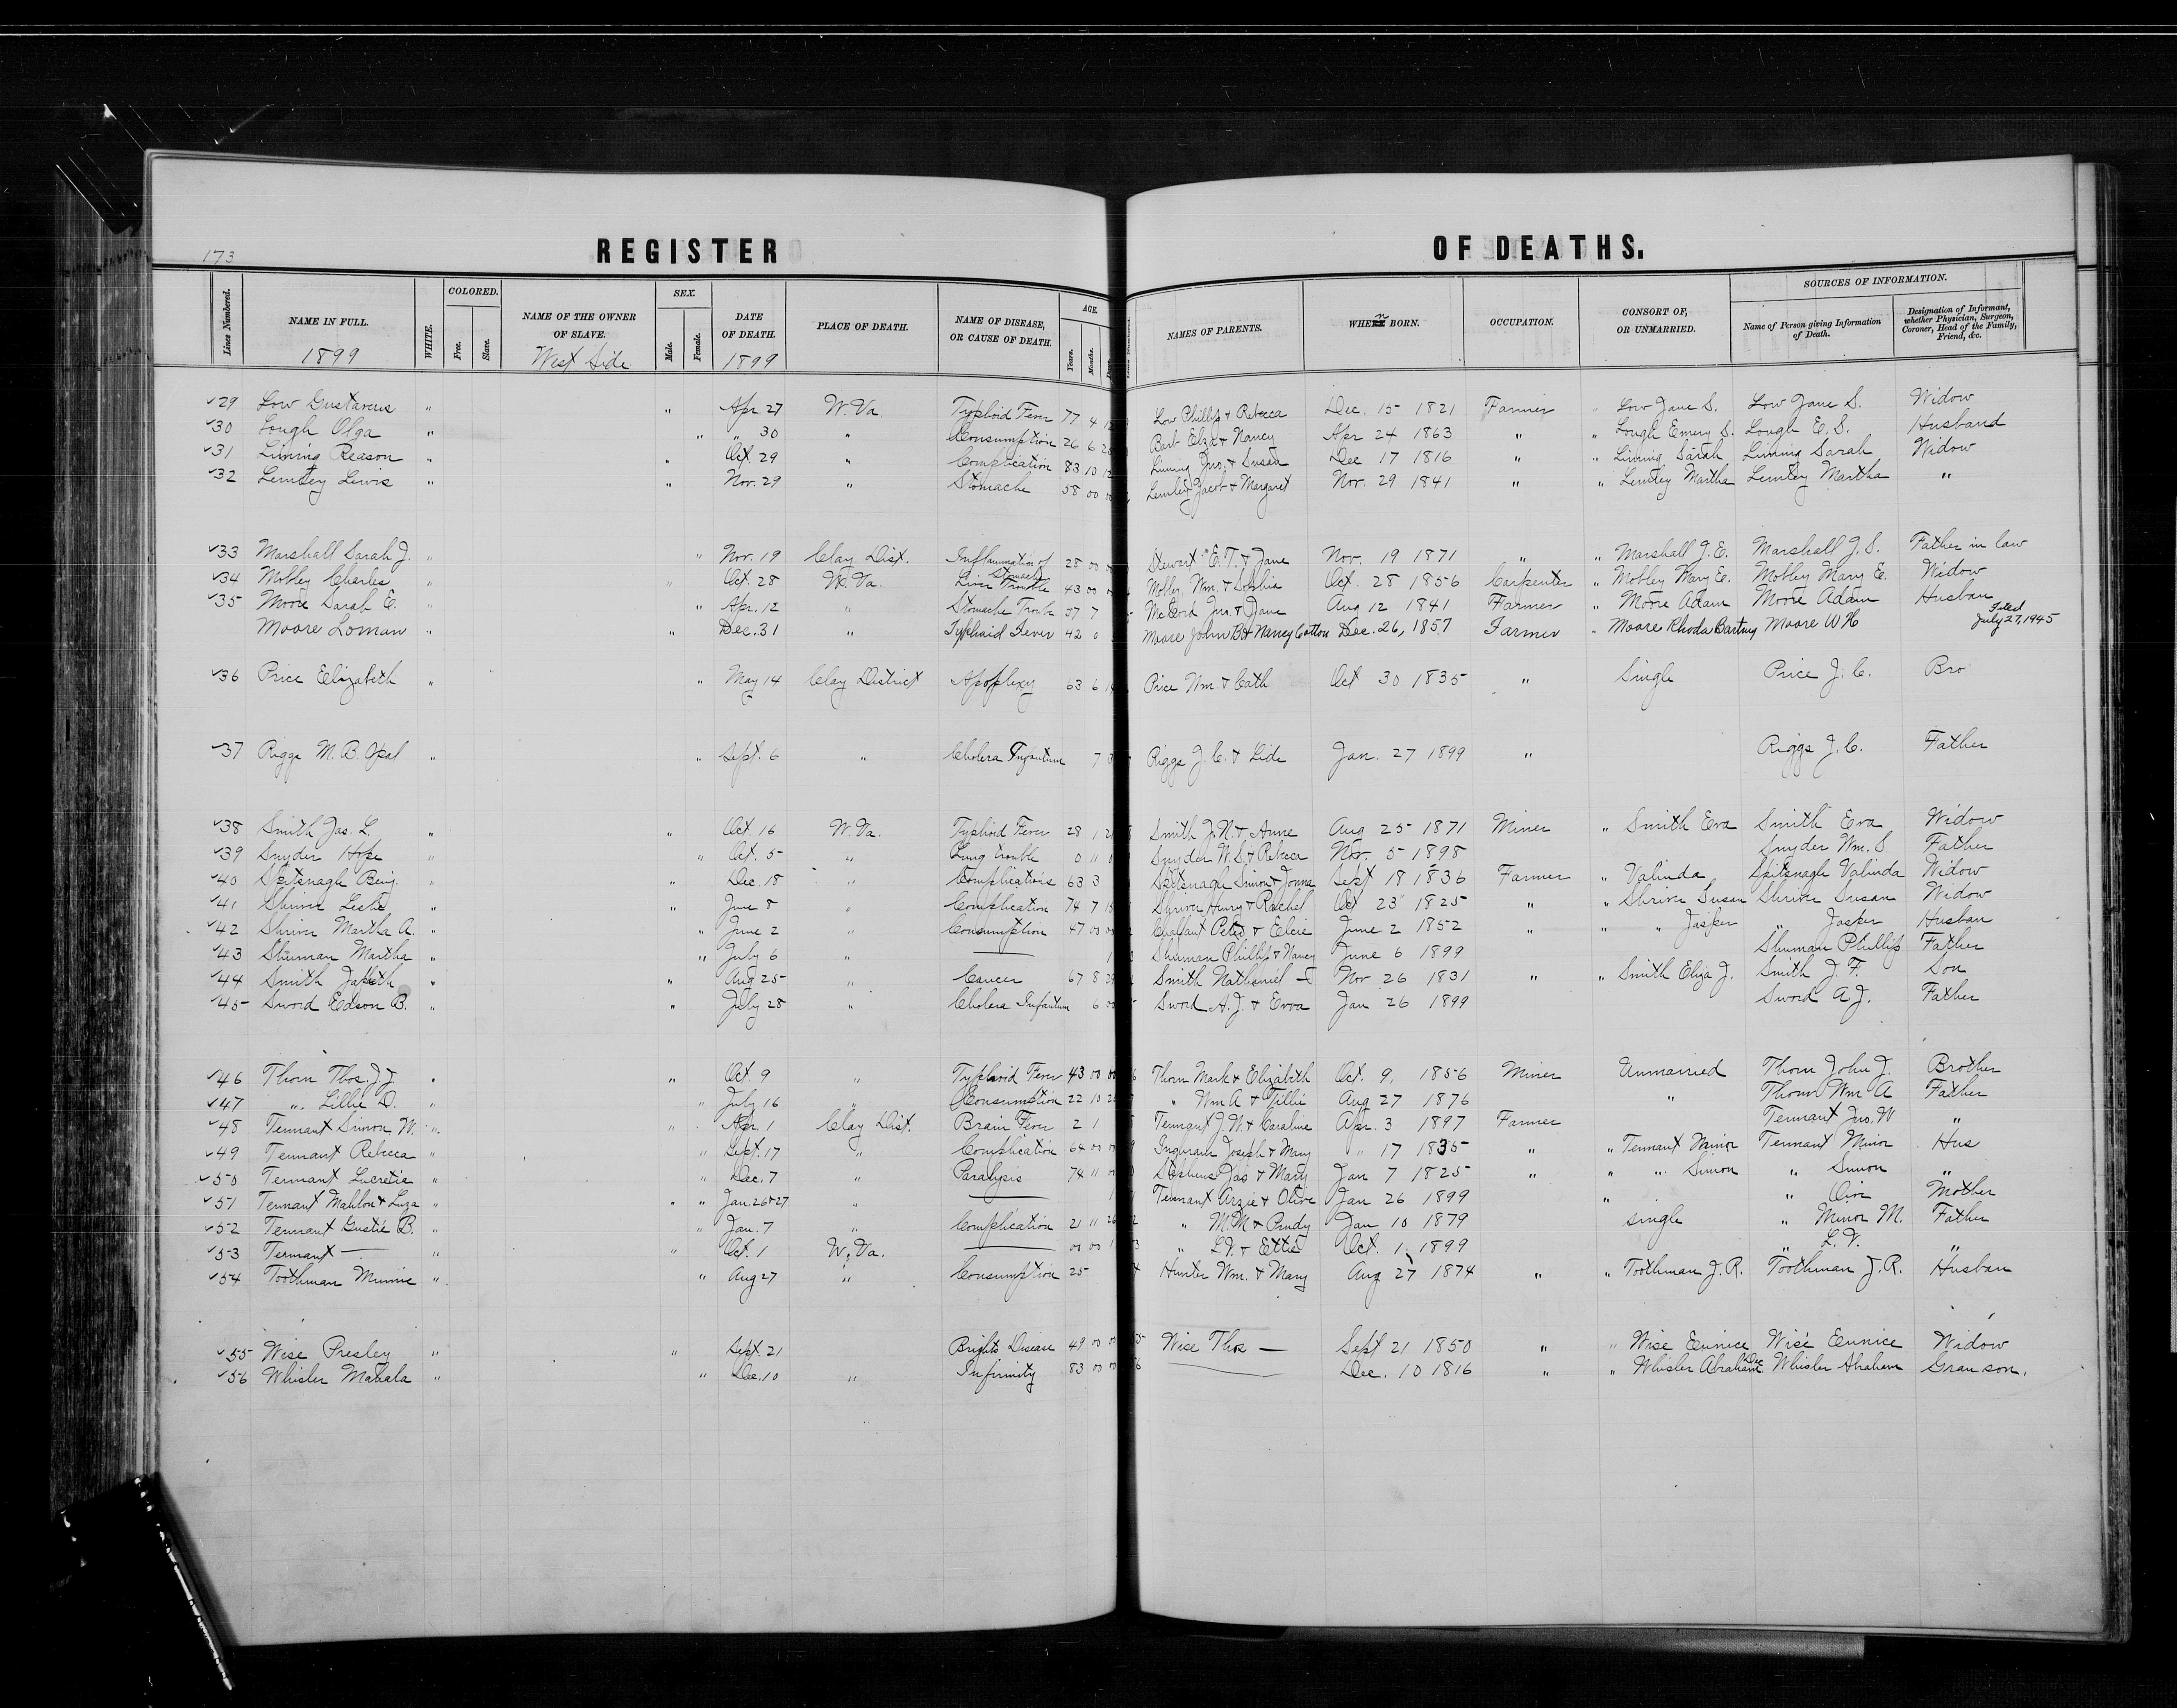 173
REGISTER OF DEATHS.
Lines Numbered. NAME IN FULL. WHITE. COLORED. Free. Slave. NAME OF THE OWNER OF SLAVE. SEX. Male. Female. DATE OF DEATH. PLACE OF DEATH. NAME OF DISEASE, OR CAUSE OF DEATH. AGE. Years. Months. NAMES OF PARENTS. WHEN BORN. OCCUPATION. CONSORT OF, OR UNMARRIED. SOURCES OF INFORMATION. Name of Person giving Information of Death. Designation of Informant, whether Physician, Surgeon, Coroner, Head of the Family, Friend, &c.
1899 West Side 1899
29 Low Gustavus " " Apr. 27 W. Va. Typhoid Fever 77 4 Low Phillip & Rebecca Dec. 15 1821 Farmer " Low Jane S. Low Jane S. Widow
30 Lough Olga " " " 30 " Consumption 26 6 Barb Elza & Nancy Apr 24 1863 " " Lough Emery S. Lough E. S. Husband
31 Liming Reason " " Oct. 29 " Complication 83 10 12 Liming Jno. & Susan Dec 17 1816 " " Liming Sarah Liming Sarah Widow
32 Lemley Lewis " " Nov. 29 " Stomache 58 00 00 Lemley Jacob & Margaret Nov. 29 1841 " " Lemley Martha Lemley Martha "
33 Marshall Sarah J. " " Nov. 19 Clay Dist. Inflamation of Stomach 28 00 Stewart E. T. & Jane Nov. 19 1871 " " Marshall J. E. Marshall J. S. Father in law
34 Mobley Charles " " Oct. 28 W. Va. Liver Trouble 43 00 Mobley Wm. & Sophia Oct. 28 1856 Carpenter " Mobley Mary E. Mobley Mary E. Widow
35 Moore Sarah E. " " Apr. 12 " Stomache Trouble 57 7 McCord Jno. & Jane Aug 12 1841 Farmer " Moore Adam Moore Adam Husban
Moore Loman " " Dec. 31 " Typhoid Fever 42 0 5 Moore John B & Nancy Cotton Dec. 26, 1857 Farmer " Moore Rhoda Bartrug Moore W H Filed July 27, 1945
36 Price Elizabeth " " May 14 Clay District Apoplexy 63 6 14 Price Wm. & Cath Oct 30 1835 " Single Price J. C. Bro
37 Riggs M. B. Opal " " Sept. 6 " Cholera Infantum 7 Riggs J. C. & Lide Jan. 27 1899 " Riggs J. C. Father
38 Smith Jas. L. " " Oct. 16 W. Va. Typhoid Fever 28 1 Smith J. N. & Anne Aug 25 1871 Miner " Smith Eva Smith Eva Widow
39 Snyder Hope " " Oct. 5 " Lung trouble 0 11 0 Snyder W. S. & Rebeca Nov. 5 1898 Snyder Wm. S Father
40 Spitznagle Benj. " " Dec. 18 " Complications 63 3 Spitznagle Simon & Sept 18 1836 Farmer " Valinda Spitznagle Valinda Widow
41 Shriver Leslie " " June 8 " Complication 74 7 15 Shriver Henry & Rachel Oct 23 1825 " " Shriver Susan Shriver Susan Widow
42 Shriver Martha A. " " June 2 " Consumption 47 00 00 Chalfant Peter & June 2 1852 " " " Jasper " Jasper Husban
43 Shuman Martha " " July 6 " — 1 Shuman Phillip & Nancy June 6 1899 Shuman Phillip Father
44 Smith Japeth " " Aug 25 " Cancer 67 8 29 Smith Nathaniel — Nov 26 1831 " " Smith Eliza J. Smith J. F. Son
45 Sword Edson B. " " July 28 " Cholera Infantum 6 Sword A. J. & Erva Jan 26 1899 Sword A J. Father
46 Thorn Thos. J J " " Oct. 9 " Typhoid Fever 43 00 00 Thorn Mark & Elizabeth Oct. 9, 1856 Miner Unmarried Thorn John J. Brother
47 " Lillie D. " " July 16 " Consumption 22 10 Wm A & Tillie Aug 27 1876 " Thorn Wm A Father
48 Tennant Simon W. " " Apr. 1 Clay Dist. Brain Fever 2 1 Tennant J. W. & Caroline Apr. 3 1897 Farmer Tennant Jno. W "
49 Tennant Rebecca " " Sept. 17 " Complication 64 00 00 Ingram Joseph & Mary " 17 1835 " " Tennant Minor Tennant Minor Hus
50 Tennant Lucretia " " Dec. 7 " Paralysis 74 11 00 Stephens Jas & Mary Jan 7 1825 " " " Simon " Simon "
51 Tennant Mahlon & Luza " " " Jan. 26 & 27 " — 1 Tennant Arzie & Olive Jan 26 1899 " " Mother
52 Tennant Gustie B. " " Jan. 7 " Complication 21 11 26 " M. M. & Prudy Jan 10 1879 single " Minor M. Father
53 Tennant — " " Oct. 1 W. Va. — 00 00 1 " L. V. & Ettie Oct. 1. 1899 " L. V. "
54 Toothman Minnie " " Aug 27 " Consumption 25 Hunter Wm. & Mary Aug 27 1874 " " Toothman J. R. Toothman J. R. Husban
55 Wise Presley " " Sept. 21 Brights Disease 49 00 00 Wise Thos — Sept 21 1850 " " Wise Eunice Wise Eunice Widow
56 Whisler Mahala " " Dec. 10 " Infirmity 83 00 00 — Dec. 10 1816 " " Whisler Abraham Dec Whisler Abraham Granson.